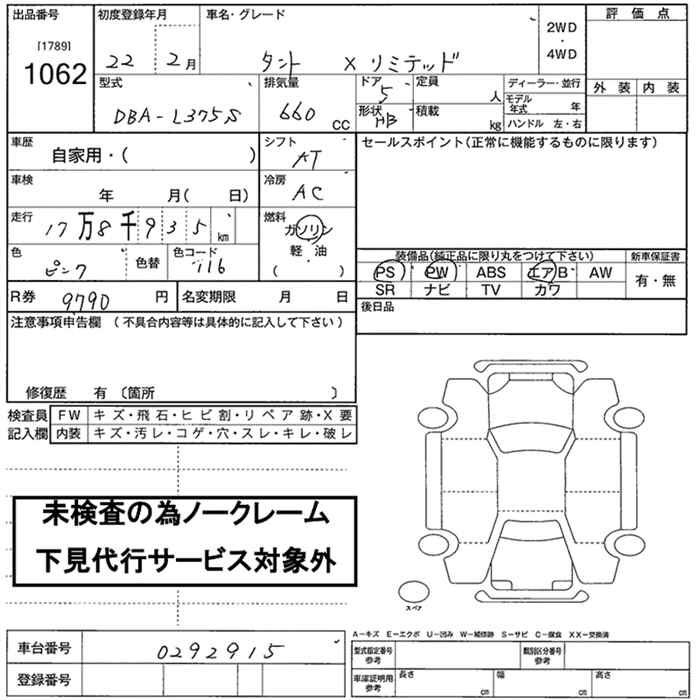 出品番号 初度登録年月 車名・グレード 評価点
[1789] 2WD
1062 22 2月 タント X リミテッド ・
4WD
型式 排気量 ドア 定員 ディーラー・並行 外装 内装
5 人 モデル年式 年
DBA-L375S 660 CC 形状 HB 積載 kg ハンドル 左・右
車歴 シフト セールスポイント(正常に機能するものに限ります)
自家用・( ) AT
車検 冷房
年 月( 日) AC
走行 燃料
17万8千935km ガソリン
軽・油
色 色替 色コード ( )
ピンク 116
装備品(純正品に限り丸をつけて下さい) 新車保証書
PS PW ABS エアB AW 有・無
SR ナビ TV カワ
R券 9790 円 名変期限 月 日
後日品
注意事項申告欄 (不具合内容等は具体的に記入して下さい)
修復歴 有 〔箇所 〕
検査員 FW キズ・飛石・ヒビ割・リペア跡・X要
記入欄 内装 キズ・汚レ・コゲ・穴・スレ・キレ・破レ
未検査の為ノークレーム
下見代行サービス対象外
スペア
A−キズ E−エクボ U−凹み W−補修跡 S−サビ C−腐食 XX−交換済
車台番号 0292915
型式指定番号 参考 類別区分番号 参考
登録番号
車庫証明用 参考 長さ cm 幅 cm 高さ cm